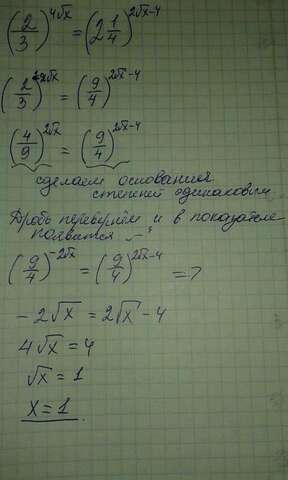 (2/3)^(4√x) = (2 1/4)^(2√x-4)
(2/3)^(2·2√x) = (9/4)^(2√x-4)
(4/9)^(2√x) = (9/4)^(2√x-4)
сделаем основания
степеней одинаковым
Дробь перевернём и в показателе
появится "-"
(9/4)^(-2√x) = (9/4)^(2√x-4) =>
-2√x = 2√x-4
4√x = 4
√x = 1
x = 1